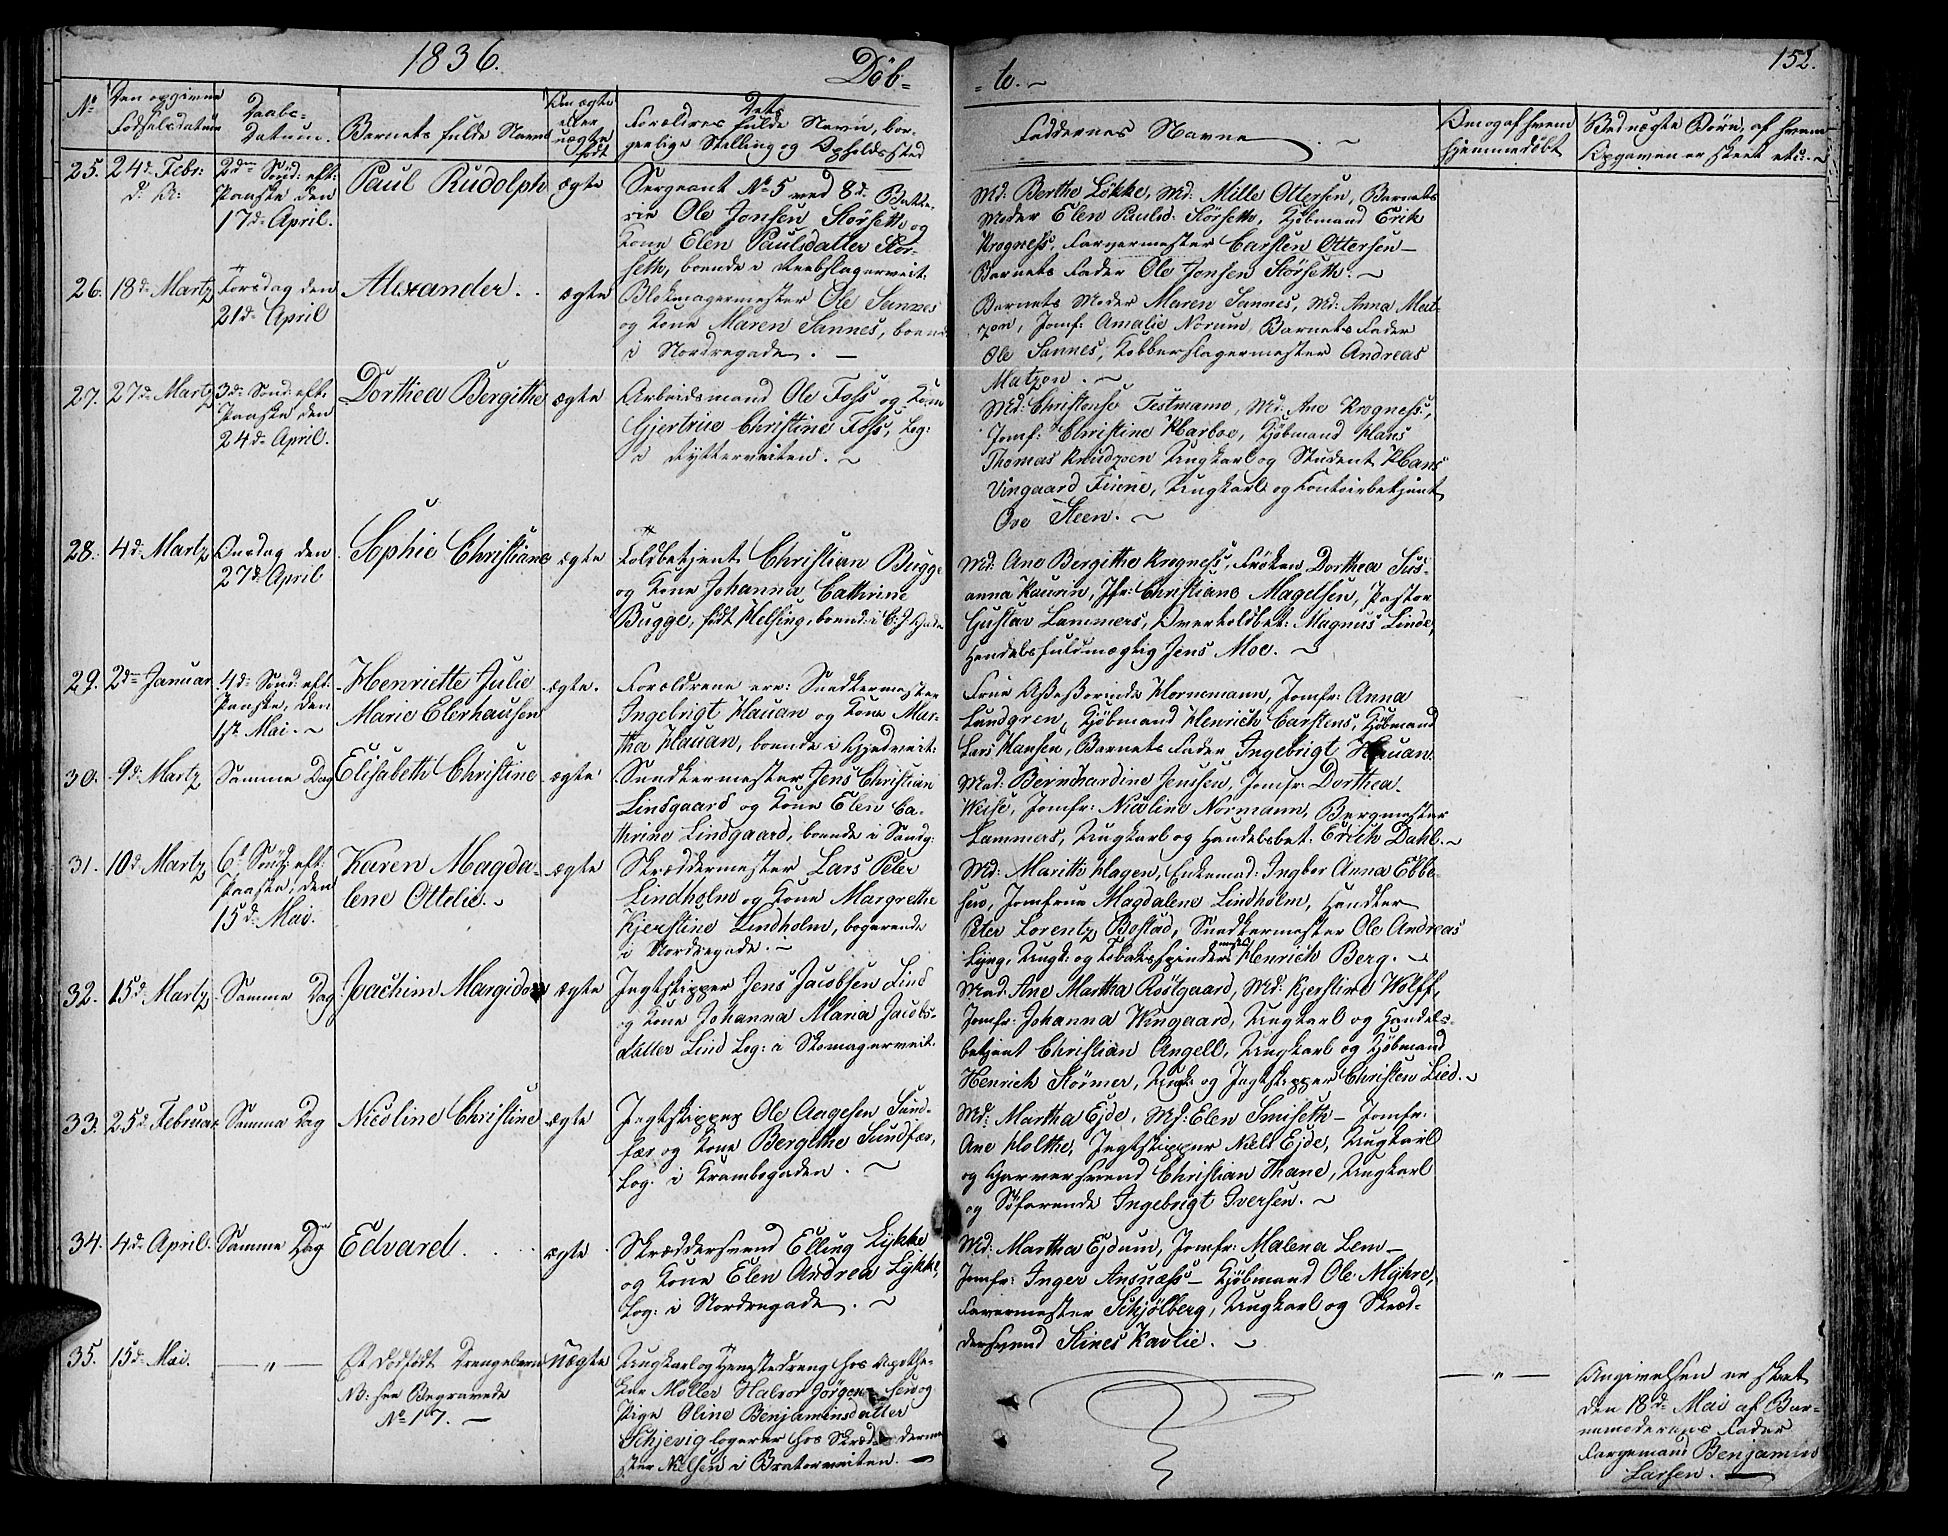 1836.
Döb-
- te. ~
152.
No
Den opgivne
Fødselsdatum
Daabs-
Datum.
Barnets fulde Navn
Om ægte
eller
uægte
født
Dets
Forældres fulde Navn, bor-
gerlige Stilling og Opholdssted
Faddernes Navne
Om og af hvem
hjemmedöbt
Ved uægte Børn, af hvem
Opgaven er skeet etc. ~
25.
24d. Febr:
2den Sönd: eft:
Paaske den
17d. April.
Paul Rudolph
ægte
Sergeant No 5 ved 8d. Batte-
rie Ole Jonsen Störseth og
Kone Elen Paulsdatter Stör-
seth, boende i Reebslagerveit.
Md: Berthe Lökke, Md: Mille Ottersen, Barnets
Moder Elen Paulsd: Störseth, Kjöbmand Erik
Krogness, Farvermester Carsten Ottersen —
Barnets Fader Ole Jonsen Störseth. ~
26.
18d. Martz
Torsdag den
21d. April
Alexander.
ægte
Blokmagermester Ole Sannes
og Kone Maren Sannes, boende
i Nordregade. —
Barnets Moder Maren Sannes, Md: Anna Mat-
zon, Jomf: Amalie Norum, Barnets Fader
Ole Sannes, Kobberslagermester Andreas
Matzon. ~
27.
27d. Martz
3d. Sönd: eft:
Paaske den
24d. April.
Dorthea Bergithe
ægte
Arbeidsmand Ole Foss og Kone
Gjertrue Christine Foss, Log:
i Rytterveiten. ~
Md: Christense Testmann, Md: Ane Krogness,
Jomf: Christine Harboe, Kjöbmand Hans
Thomas Knudzoen Ungkarl og Student Hans
Vingaard Finne, Ungkarl og Contoirbetjent
Ove Steen. ~
28.
4d. Martz
Onsdag den
27d. April
Sophie Christiane
ægte
Toldbetjent Christian Bugge
og Kone Johanna Cathrine
Bugge, födt Helsing, boend: i C. J. Gade
Md: Ane Bergithe Krogness, Fröken Dorthea Sus-
anna Kaurin, Jfr: Christiane Magelsen, Pastor
Gustav Lammers, Overtoldbet: Magnus Linde,
Handelsfuldmægtig Jens Moe. ~
29.
2den Januar
4d. Sönd: eft:
Paaske, den
1st. Mai. ~
Henriette Julie
Marie Elerhausen
ægte.
Forældrene ere: Snedkermester
Ingebrigt Hauan og Kone Mar-
tha Hauan, boende i Gjedveit.
Frue Assessorinde Hornemann, Jomfr: Anna
Lundgren, Kjöbmand Henrich Carstens, Kjöbmand
Lars Hansen, Barnets Fader Ingebrigt Hauan.
30.
9d. Martz
Samme Dag
Elisabeth Christine
ægte
Snedkermester Jens Christian
Lindgaard og Kone Elen Ca-
thrine Lindgaard, boende i Sandg:
Mad: Bernhardine Jenssen, Jomfr: Dorthea
Weise, Jomfr: Nicoline Normann, Bergmester
Lammers, Ungkarl og Handelsbet: Erich Dahl. ~
31.
10d. Martz
6t Sönd: eft:
Paaske, den
15d. Mai.
Karen Magda-
lene Ottelie. ~
ægte
Skræddermester Lars Peter
Lindholm og Kone Margrethe
Kjerstine Lindholm, bogerende
i Nordregade. ~
Md: Marith Hagen, Enkemad: Ingbor Anna Ebbe-
sen, Jomfrue Magdalene Lindholm, Handler
Peter Lorentz Bostad, Snedkermester Ole Andreas
Lyng, Ungk: og Tobaksspindermester Henrich Berg. ~
32.
15d. Martz
Samme Dag
Joachim Margido
ægte
Jegtskipper Jens Jacobsen Lind
og Kone Johanna Maria Jacobs-
datter Lind Log: i Skomagerveit.
Mad: Ane Martha Röstgaard, Md: Kjerstine Wolff,
Jomfr: Johanna Wingaard, Ungkarl og Handels-
betjent Christian Angell, Ungkarl og Kjöbmand
Henrich Störmer, Ungk: og Jegtskipper Christen Lied. ~
33.
25d. Februar
Samme Dag
Nicoline Christine
ægte
Jegtskipper Ole Aagesen Sund-
fær og Kone Bergithe Sundfær,
Log: i Krambogaden. ~
Md: Martha Ejde, Md: Elen Smiseth — Jomfr:
Ane Holthe, Jegtskipper Niels Ejde, Ungkarl
og Garversvend Christian Thane, Ungkarl
og Söfarende Ingebrigt Iversen. ~
34.
4d. April.
Samme Dag
Edvard.
ægte
Skræddersvend Elling Lykke
og Kone Elen Andrea Lykke,
Log: i Nordregade. ~
Md: Martha Ejdum, Jomfr: Malena Lem —
Jomfr: Inger Ansnæss — Kjöbmand Ole Myhre,
Farvermester Schjölberg, Ungkarl og Skræd-
dersvend Stines Kavlie. ~
35.
15d. Mai.
— " —
Et Dödfödt Drengebarn
NB: see Begravede
No 17. —
Uægte
Ungkarl og Hengstedreng hos Apothe-
ker Möller Halvor Jörgensen og
Pige Oline Benjaminsdatter
Schjevig logerer hos Skrædderme-
ster Nielsen i Bratörveiten. —
— " —
Angivelsen er skeet
den 18d. Mai af Bar-
nemoderens Fader
Færgemand Benjamin
Larsen. —